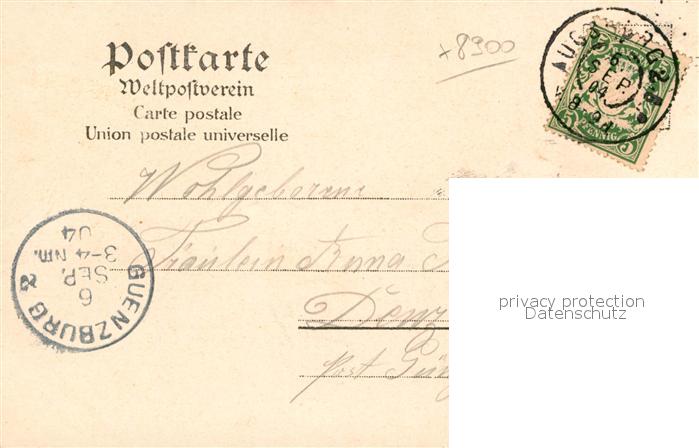 Postkarte
Weltpostverein
Carte postale
Union postale universelle
+8900
AUGSBURG 2.B.
6
SEP.
04
5 5
PFENNIG
Wohlgeboren
Fräulein Anna
Post Gün
GUENZBURG 2
6
SEP.
3-4 Nm.
04
privacy protection
Datenschutz